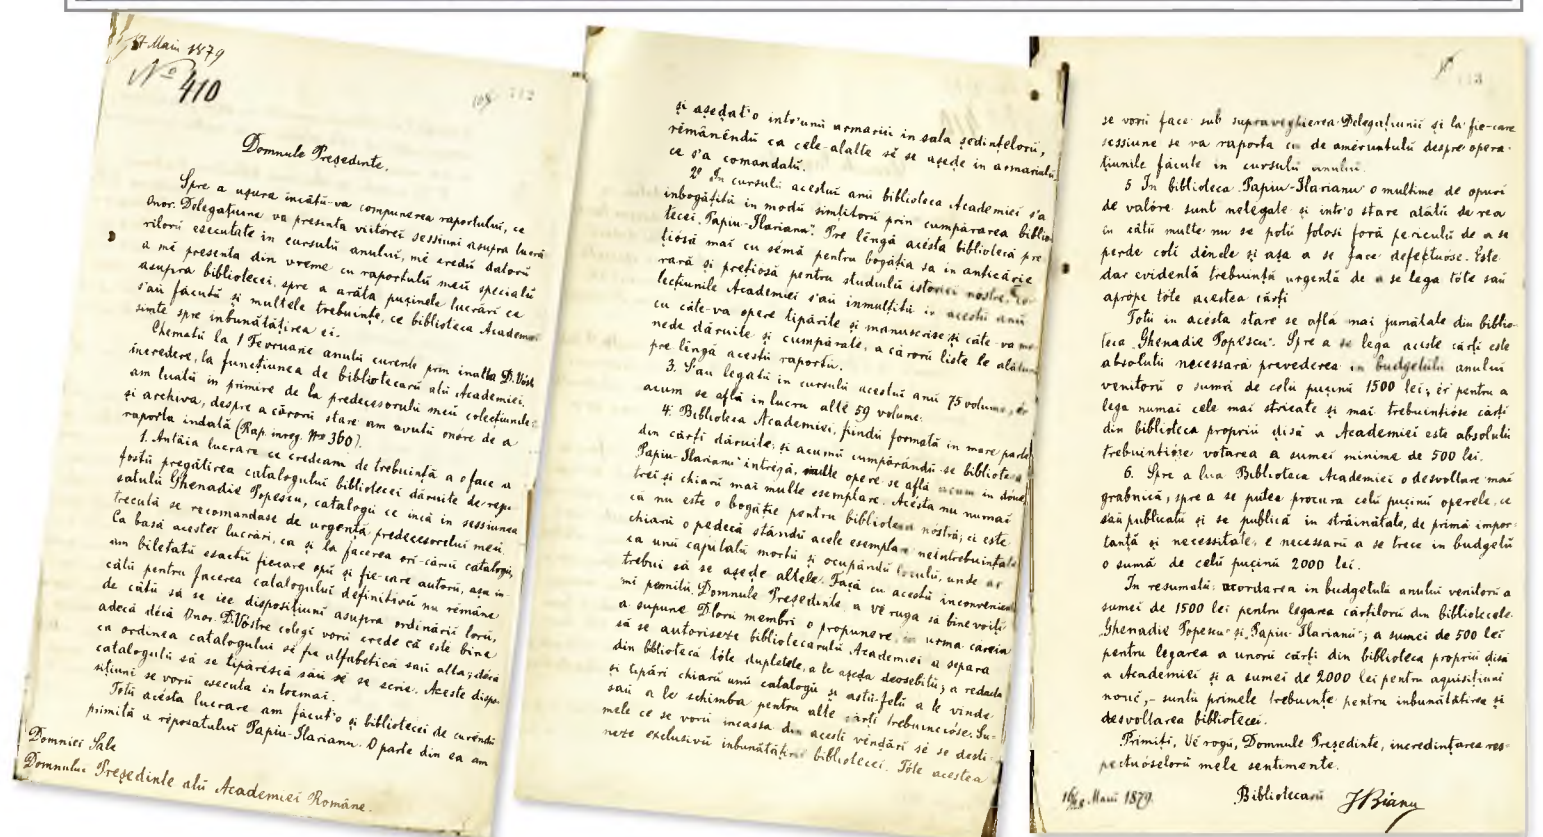 17 Maiu 1879
No 410
Domnule Președinte,
Spre a ușura încâtŭ-va compunerea raportului, ce
Onor. Delegațiune va presenta viitorei sessiuni asupra lucră-
rilorŭ esecutate in cursulŭ anului, mĕ credŭ datorŭ
a mĕ presenta din vreme cu raportulŭ meŭ specialŭ
asupra bibliotecei, spre a arăta puținele lucrări ce
s'aŭ făcutŭ și multele trebuințe, ce biblioteca Academiei
simte spre inbunătățirea ei.
Chematŭ la 1 Fevruarie anulŭ curente prin inalta D. Vóstră
incredere, la funcțiunea de bibliotecarŭ alŭ Academiei,
am luatŭ in primire de la predecesorulŭ meŭ colecțiunile
și archiva, despre a cărorŭ stare am avutŭ onóre de a
raporta indată (Rap. inreg. No 360).
1. Antâia lucrare ce credeam de trebuință a o face a
fostŭ pregătirea catalogului bibliotecei dăruite de repo-
satulŭ Ghenadie Popescu, catalogŭ ce incă in sessiunea
trecută se recomandase de urgență predecesorelui meŭ.
Ca basă acestei lucrări, ca și la facerea ori-cărui catalogŭ,
am biletatŭ esactŭ fiecare opŭ și fie-care autorŭ, așa in-
câtŭ pentru facerea catalogului definitivŭ nu rĕmâne
de câtŭ să se iee disposițiuni asupra ordinării lorŭ,
adecă décă Onor. D. Vóstre colegi vorŭ crede că este bine
ca ordinea catalogului să fie alfabetică saŭ alta; décă
catalogulŭ să se tipărésca saŭ sĕ se scrie. Aceste dispo-
sițiuni se vorŭ esecuta intocmai.
Totŭ acésta lucrare am făcut'o și bibliotecei de curêndŭ
primită a rĕposatului Papiu-Ilarianu. O parte din ea am
Domniei Sale
Domnului Președinte alŭ Academiei Române.
și așeḑat'o intr'unŭ armariŭ in sala ședințelorŭ,
rĕmânêndŭ ca cele-alalte sĕ se așeḑe in armariulŭ
ce s'a comandatŭ.
2º In cursulŭ acestui anŭ biblioteca Academiei s'a
inbogățitŭ in modŭ simțitorŭ prin cumpărarea biblio-
tecei "Papiu-Ilarianu". Pre lêngă acésta bibliotecă pre-
țiósă mai cu sémă pentru bogăția sa in anticărie
rară și prețiósă pentru studiulŭ istoriei nóstre, co-
lecțiunile Academiei s'aŭ inmulțitŭ in acestŭ anŭ
cu câte-va opere tipărite și manuscrise și câte-va mo-
nede dăruite și cumpărate, a cărorŭ liste le alăturŭ
pre lêngă acestŭ raportŭ.
3. S'aŭ legatŭ in cursulŭ acestui anŭ 75 volume, ér
acum se află in lucru alte 59 volume.
4. Biblioteca Academiei, fiindŭ formată in mare parte
din cărți dăruite, și acumŭ cumpărându-se biblioteca
Papiu-Ilarianu intrégă, multe opere se află acum in doue,
trei și chiarŭ mai multe esemplare. Acésta nu numai
că nu este o bogăție pentru biblioteca nóstră; ci este
chiarŭ o pedecă stândŭ acele esemplare neintrebuințate
ca unŭ capitalŭ mortŭ și ocupândŭ loculŭ, unde ar
trebui să se așeḑe altele. Față cu acestŭ inconvenient
mi permitŭ, Domnule Președinte, a Vĕ ruga să bine voiți
a supune D-lorŭ membri o propunere, in urma căreia
să se autoriseze bibliotecarulŭ Academiei a separa
din bibliotecă tóte dupletele, a le așeḑa deosebitŭ; a redacta
și tipări chiarŭ unŭ catalogŭ și astŭ-felŭ a le vinde
saŭ a le schimba pentru alte cărți trebuincióse. Su-
mele ce se vorŭ incassa din acesti vêndări sĕ se desti-
neze exclusivŭ inbunătățirei bibliotecei. Tóte acestea
se vorŭ face sub supraveghierea Delegațiunii și la fie-care
sessiune se va raporta cu de amĕruntulŭ despre opera-
țiunile făcute in cursulŭ anului.
5 In biblioteca "Papiu-Ilarianu" o mulțime de opuri
de valóre sunt nelegate și intr'o stare atâtŭ de rea
in câtŭ multe nu se potŭ folosi fără periculŭ de a se
perde coli dênele și așa a se face defektuóse. Este
dar evidentă trebuința urgentă de a se lega tóte saŭ
aprópe tóte acestea cărți
Totŭ in acésta stare se află mai jumătate din biblio-
teca "Ghenadie Popescu". Spre a se lega aceste cărți este
absolutŭ necessara prevederea in budgetulŭ anului
venitorŭ o sumă de celŭ puçinŭ 1500 lei; ér pentru a
lega numai cele mai stricate și mai trebuințióse cărți
din biblioteca propriŭ ḑisă a Academiei este absolutŭ
trebuințióse votarea a sumei minime de 500 lei.
6. Spre a lua Biblioteca Academiei o desvoltare mai
grabnică, spre a se putea procura celŭ puçinŭ operele, ce
s'aŭ publicatŭ și se publică in străinătate, de primă impor-
tanță și necessitate, e necessarŭ a se trece in budgetŭ
o sumă de celŭ puçinŭ 2000 lei.
In resumatŭ: acordarea in budgetulŭ anului venitorŭ a
sumei de 1500 lei pentru legarea cărțilorŭ din bibliotecele
"Ghenadie Popescu" și "Papiu Ilarianu"; a sumei de 500 lei
pentru legarea a unorŭ cărți din biblioteca propriŭ ḑisă
a Academiei și a sumei de 2000 lei pentru aquisițiuni
nouĕ, – suntŭ primele trebuințe pentru inbunătățirea și
desvoltarea bibliotecei.
Primiți, Vĕ rogŭ, Domnule Președinte, incredințarea res-
pectuóselorŭ mele sentimente.
16/28 Maiŭ 1879.
Bibliotecarŭ
J Bianu